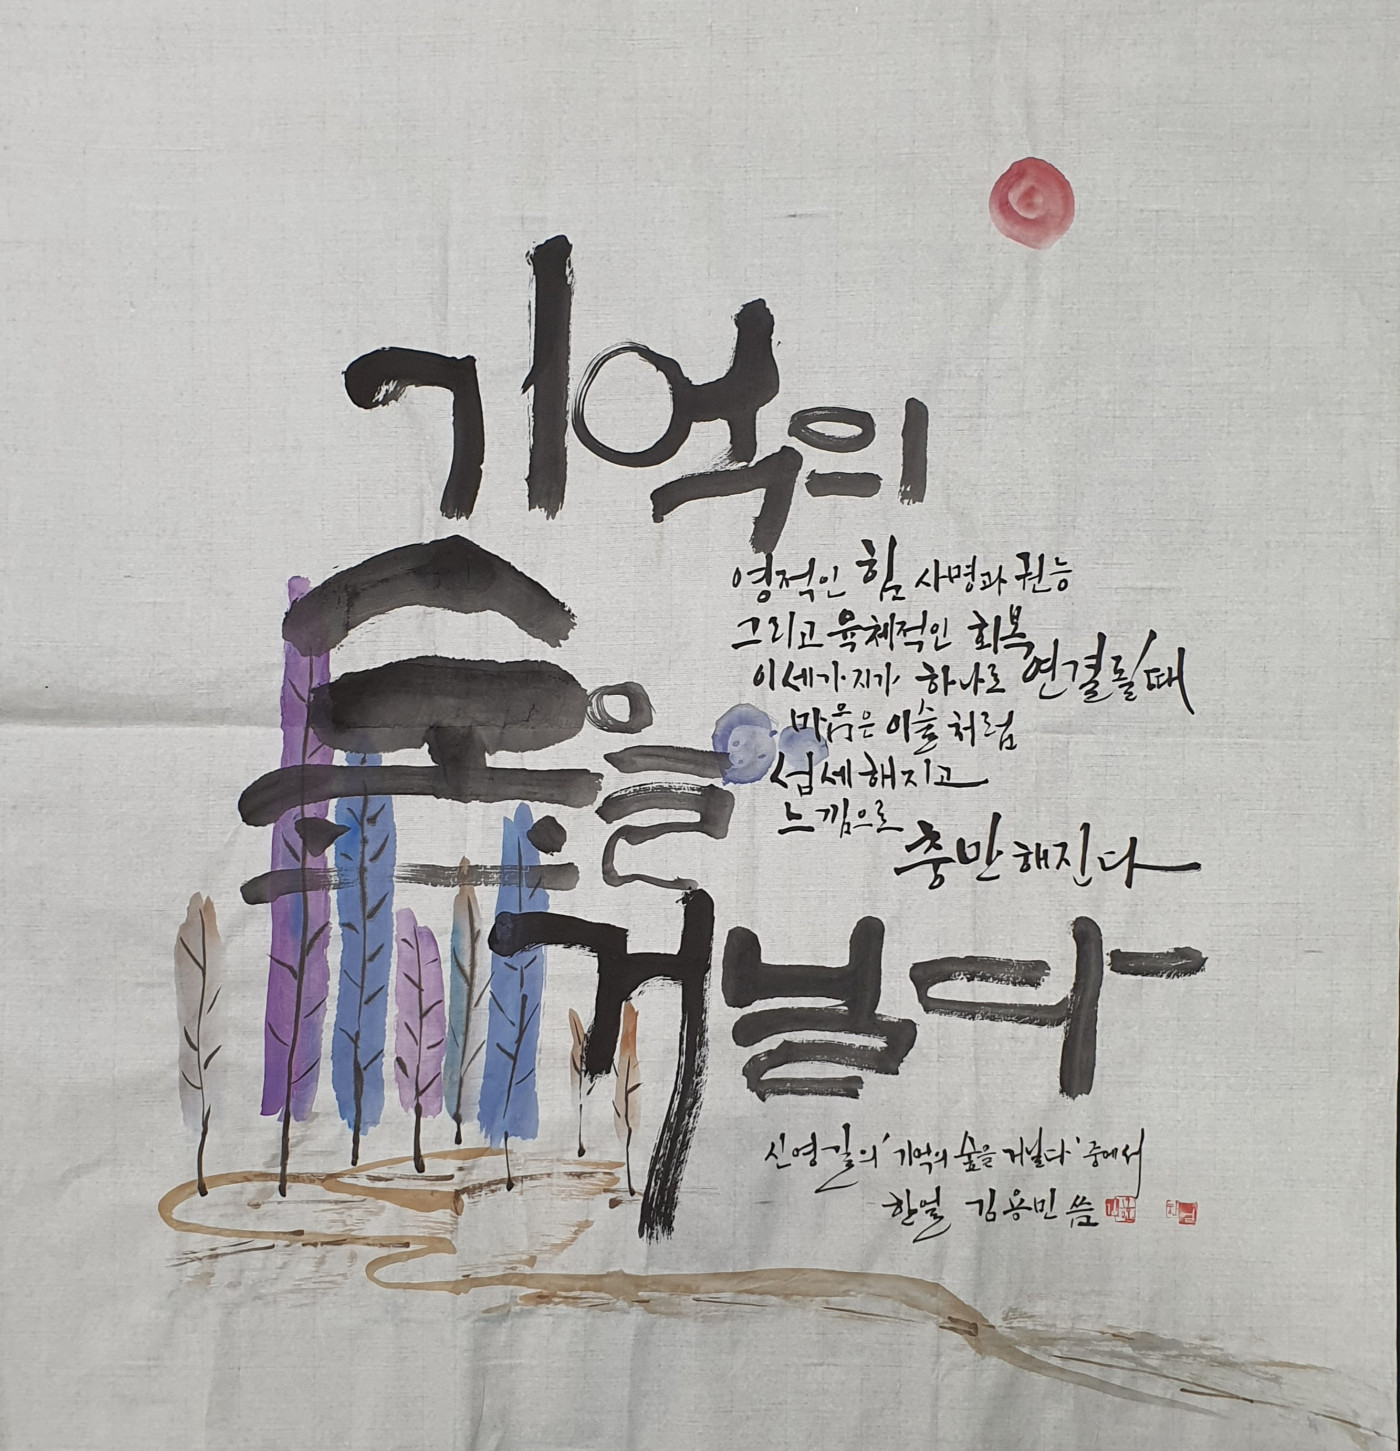 기억의
숲을
거닐다
영적인 힘 사명과 권능
그리고 육체적인 회복
이 세가지가 하나로 연결될때
마음은 이슬처럼
섬세해지고
느낌으로
충만해진다
신영길의 '기억의 숲을 거닐다' 중에서
한얼 김용민 씀